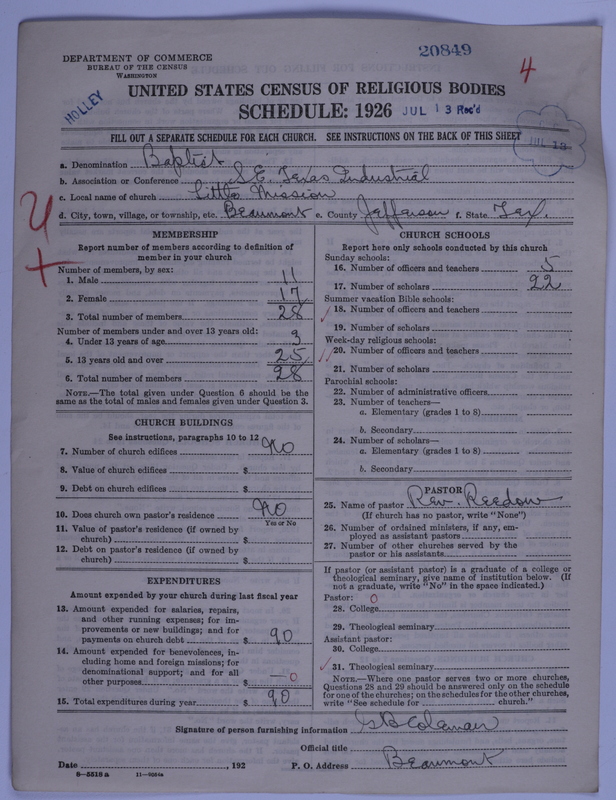 20849
4
DEPARTMENT OF COMMERCE
BUREAU OF THE CENSUS
WASHINGTON
HOLLEY
UNITED STATES CENSUS OF RELIGIOUS BODIES
SCHEDULE: 1926 JUL 13 Rec'd
FILL OUT A SEPARATE SCHEDULE FOR EACH CHURCH. SEE INSTRUCTIONS ON THE BACK OF THIS SHEET
JUL 13
a. Denomination Baptist
b. Association or Conference S.E. Texas Industrial
c. Local name of church Little Mission
d. City, town, village, or township, etc. Beaumont e. County Jefferson f. State Tex.
MEMBERSHIP
Report number of members according to definition of
member in your church
Number of members, by sex:
1. Male 11
2. Female 17
3. Total number of members 28
Number of members under and over 13 years old:
4. Under 13 years of age 3
5. 13 years old and over 25
6. Total number of members 28
NOTE.—The total given under Question 6 should be the
same as the total of males and females given under Question 3.
CHURCH BUILDINGS
See instructions, paragraphs 10 to 12
7. Number of church edifices No
8. Value of church edifices $
9. Debt on church edifices $
10. Does church own pastor's residence No
Yes or No
11. Value of pastor's residence (if owned by
church) $
12. Debt on pastor's residence (if owned by
church) $
EXPENDITURES
Amount expended by your church during last fiscal year
13. Amount expended for salaries, repairs,
and other running expenses; for im-
provements or new buildings; and for
payments on church debt $ 90
14. Amount expended for benevolences, in-
cluding home and foreign missions; for
denominational support; and for all
other purposes $ —0
15. Total expenditures during year $ 90
CHURCH SCHOOLS
Report here only schools conducted by this church
Sunday schools:
16. Number of officers and teachers 5
17. Number of scholars 22
Summer vacation Bible schools:
18. Number of officers and teachers
19. Number of scholars
Week-day religious schools:
20. Number of officers and teachers
21. Number of scholars
Parochial schools:
22. Number of administrative officers
23. Number of teachers—
a. Elementary (grades 1 to 8)
b. Secondary
24. Number of scholars—
a. Elementary (grades 1 to 8)
b. Secondary
PASTOR
25. Name of pastor Rev. Reedow
(If church has no pastor, write "None")
26. Number of ordained ministers, if any, em-
ployed as assistant pastors
27. Number of other churches served by the
pastor or his assistants
If pastor (or assistant pastor) is a graduate of a college or
theological seminary, give name of institution below. (If
not a graduate, write "No" in the space indicated.)
Pastor: 0
28. College
29. Theological seminary
Assistant pastor:
30. College
31. Theological seminary
NOTE.—Where one pastor serves two or more churches,
Questions 28 and 29 should be answered only on the schedule
for one of the churches; on the schedules for the other churches,
write "See schedule for church."
Signature of person furnishing information Coleman
Official title
Date , 192 P. O. Address Beaumont
8—5518 a 11—9084a